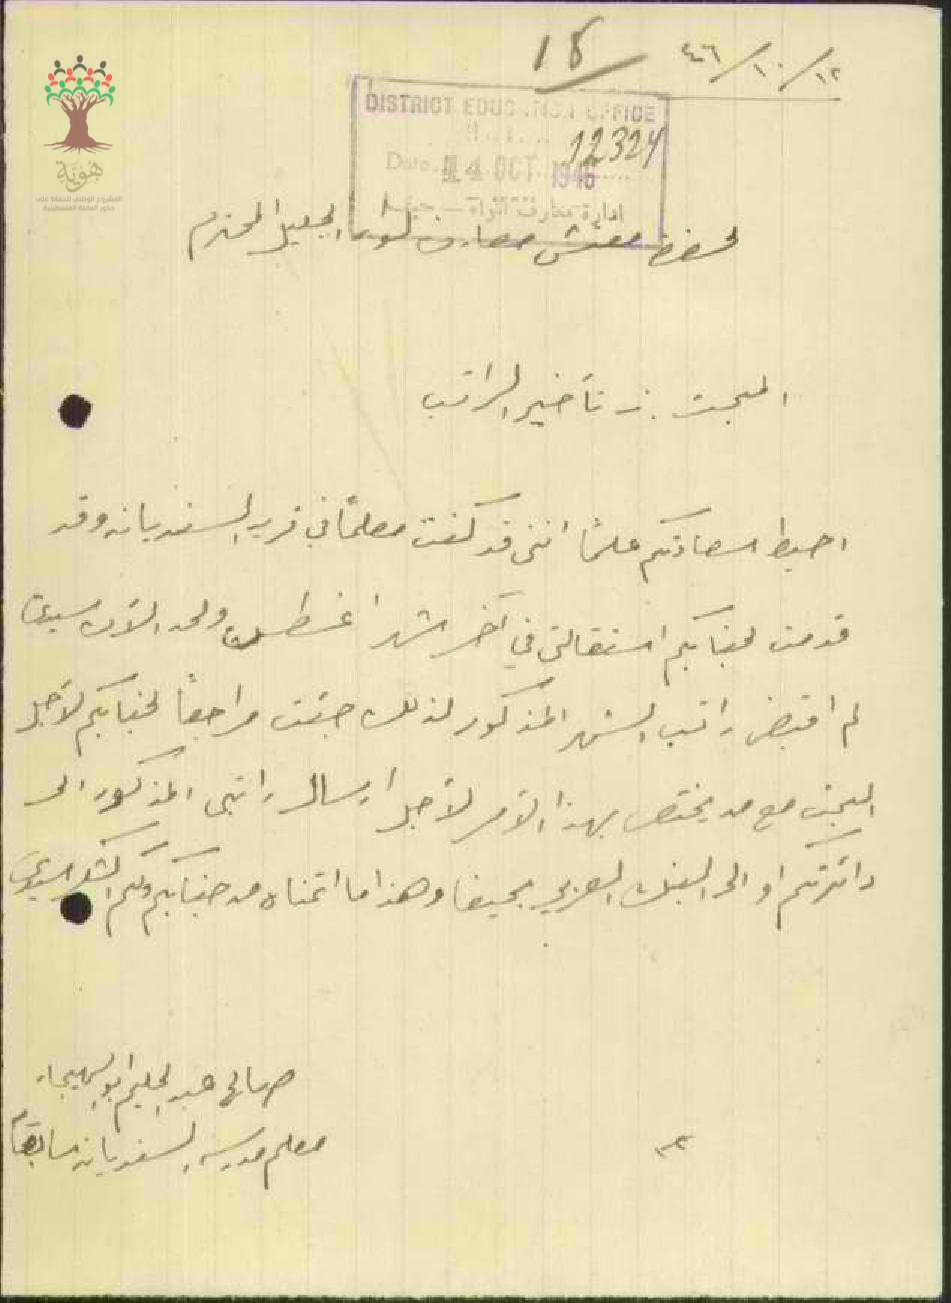 ١٢/١٠/٤٦
18
DISTRICT EDUCATION OFFICE
12324
Date 14 OCT 1946
ادارة معارف لواء — حيفا
هُويَّة
المشروع الوطني للحفاظ على
جذور العائلة الفلسطينية
لحضرة مفتش معارف لواء الجليل المحترم
المبحث :- تأخير الراتب
احيط سعادتكم علمًا انني قد كنت معلمًا في قرية السنديانه وقد
قدمت لجنابكم استقالتي في آخر شهر اغسطس ولحد الآن سيدي
لم اقبض راتب الشهر المذكور لذلك جئت مراجعًا لجنابكم لأجل
البحث مع من يختص بهذا الأمر لأجل ارسال راتبي المذكور الى
دائرتكم او الى البنك العربي بحيفا وهذا ما اتمناه من جنابكم ولكم الشكر سيدي
صالح عبد الحليم ابو الهيجاء
معلم مدرسة السنديانه سابقًا